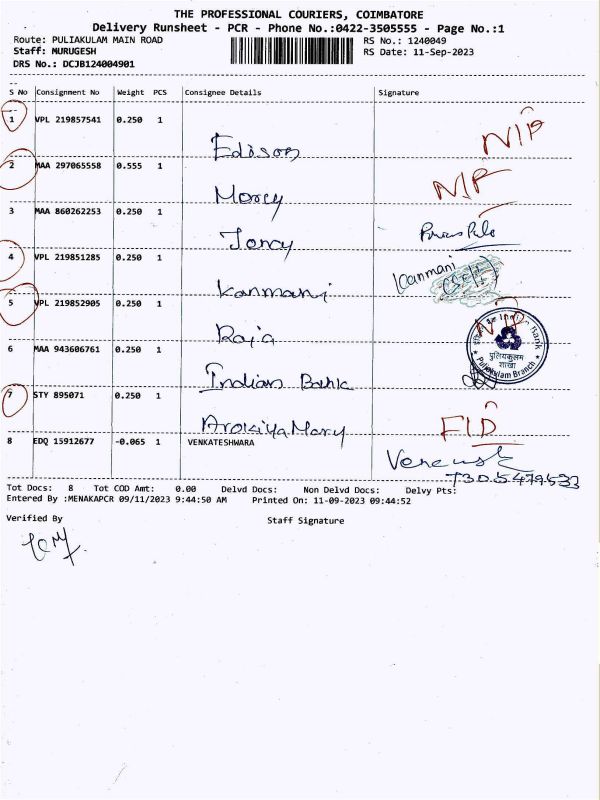 THE PROFESSIONAL COURIERS, COIMBATORE
Delivery Runsheet - PCR - Phone No.:0422-3505555 - Page No.:1
Route: PULIAKULAM MAIN ROAD RS No.: 1240049
Staff: MURUGESH RS Date: 11-Sep-2023
DRS No.: DCJB124004901
S No Consignment No Weight PCS Consignee Details Signature
1 VPL 219857541 0.250 1
Edison N/P
2 MAA 297065558 0.555 1
Morcy N/P
3 MAA 860262253 0.250 1
Joncy
4 VPL 219851285 0.250 1
Kanmani Kanmani (Self)
5 VPL 219852905 0.250 1
Raja
6 MAA 943606761 0.250 1
Indian Bank
புலியகுளம்
शाखा
Puliakulam Branch
7 STY 895071 0.250 1
Arokiya Mary F/D
8 EDQ 15912677 -0.065 1 VENKATESHWARA
Tot Docs: 8 Tot COD Amt: 0.00 Delvd Docs: Non Delvd Docs: Delvy Pts:
Entered By :MENAKAPCR 09/11/2023 9:44:50 AM Printed On: 11-09-2023 09:44:52
Verified By Staff Signature